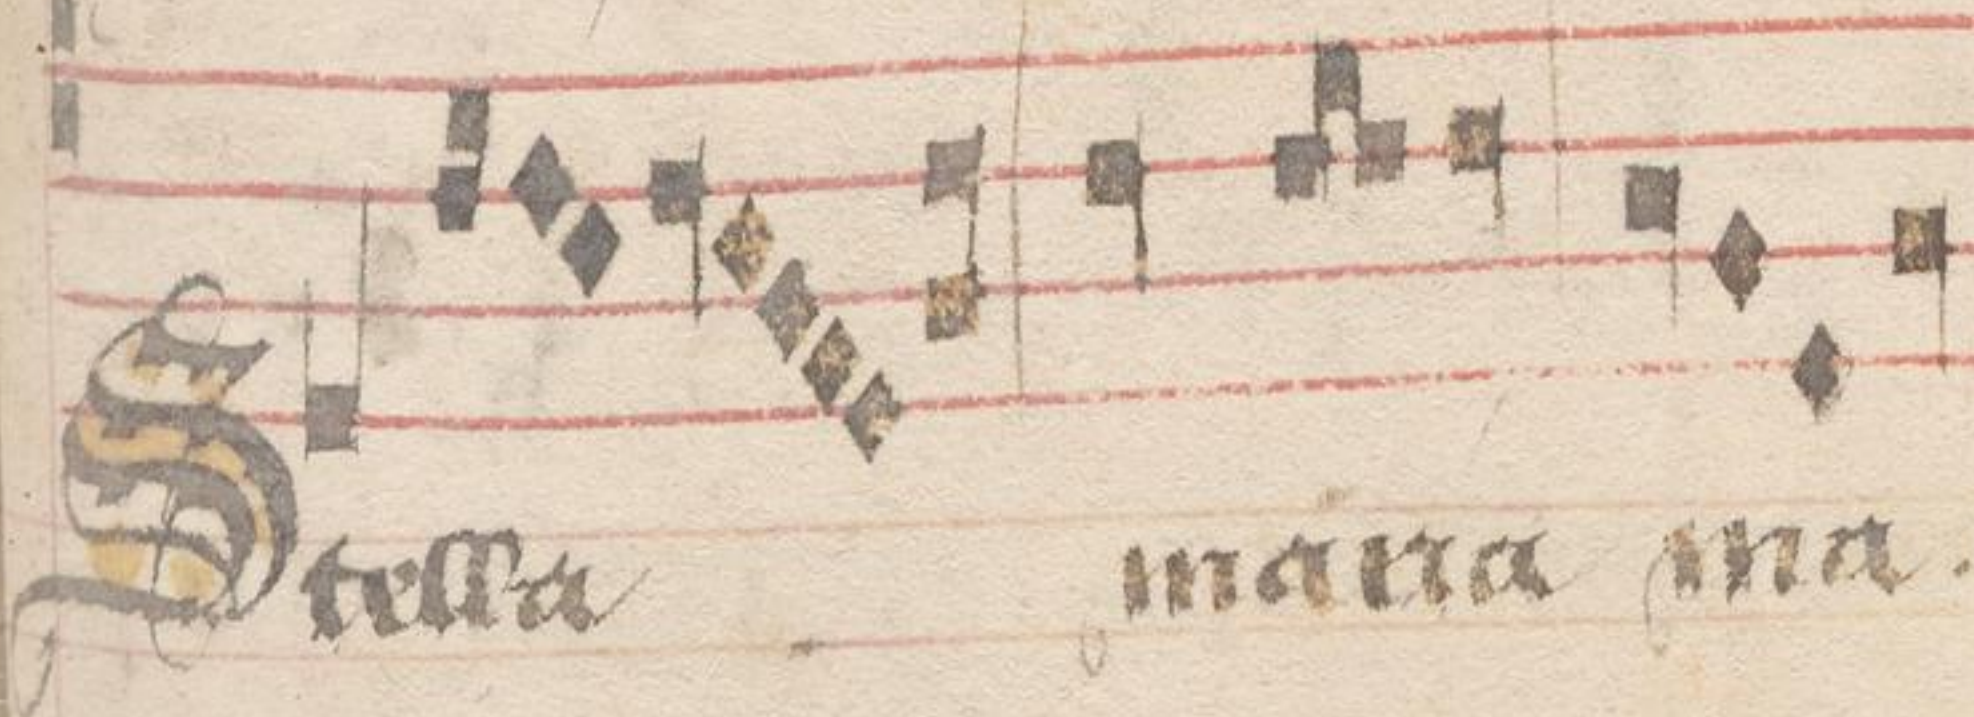 Stella maria ma.